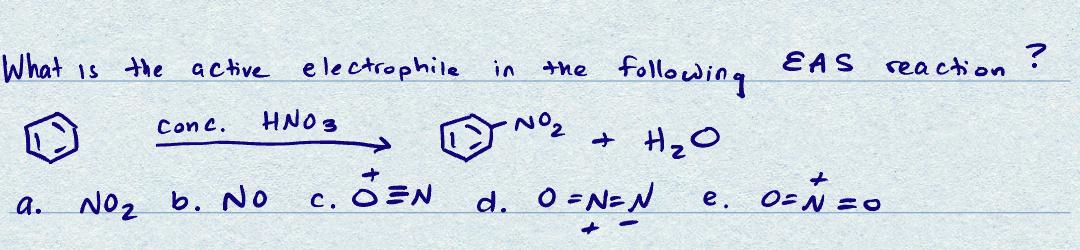 What is the active electrophile in the following EAS reaction?
conc. HNO3 NO2 + H2O
a. NO2 b. NO c. O+≡N d. O=N+=N- e. O=N+=O